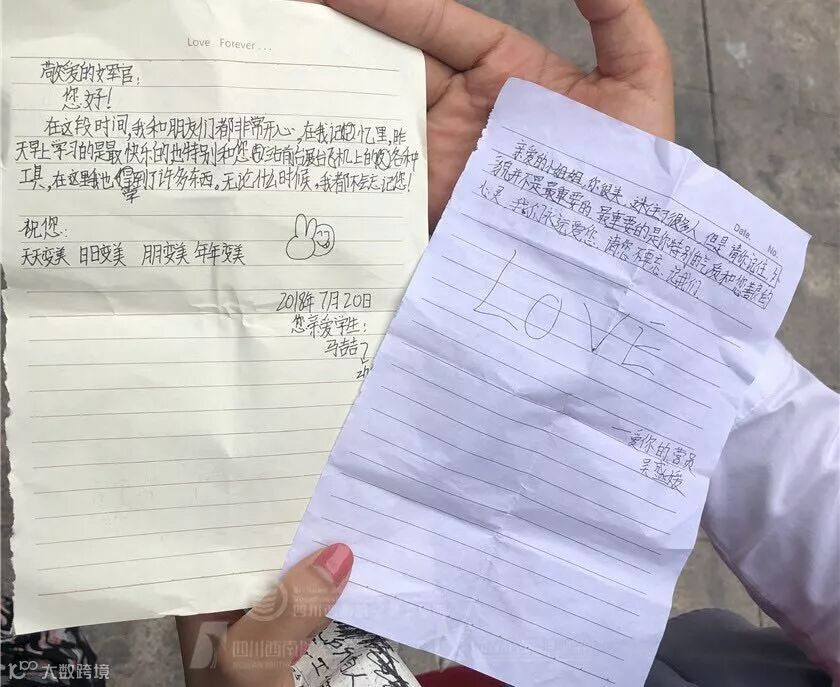 Love Forever...
敬爱的教官：
您好！
在这段时间，我和朋友们都非常开心，在我记忆里，昨
天早上学习的是最快乐的也特别和您
工具，在这里我也得到了许多东西。无论什么时候，我都不会忘记您！
学
祝您：
天天变美 日日变美 月月变美 年年变美
2018年7月20日
您亲爱学生：
马喆
Date. No.
亲爱的小姐姐，你很美，迷住了很多人 但是，请你记住，外
貌并不是最重要的 最重要的是你特别的气质和您善良的
心灵，我们永远爱您，请您不要忘记我们。
LOVE
一爱你的营员
吴
四川西南
大数跨境